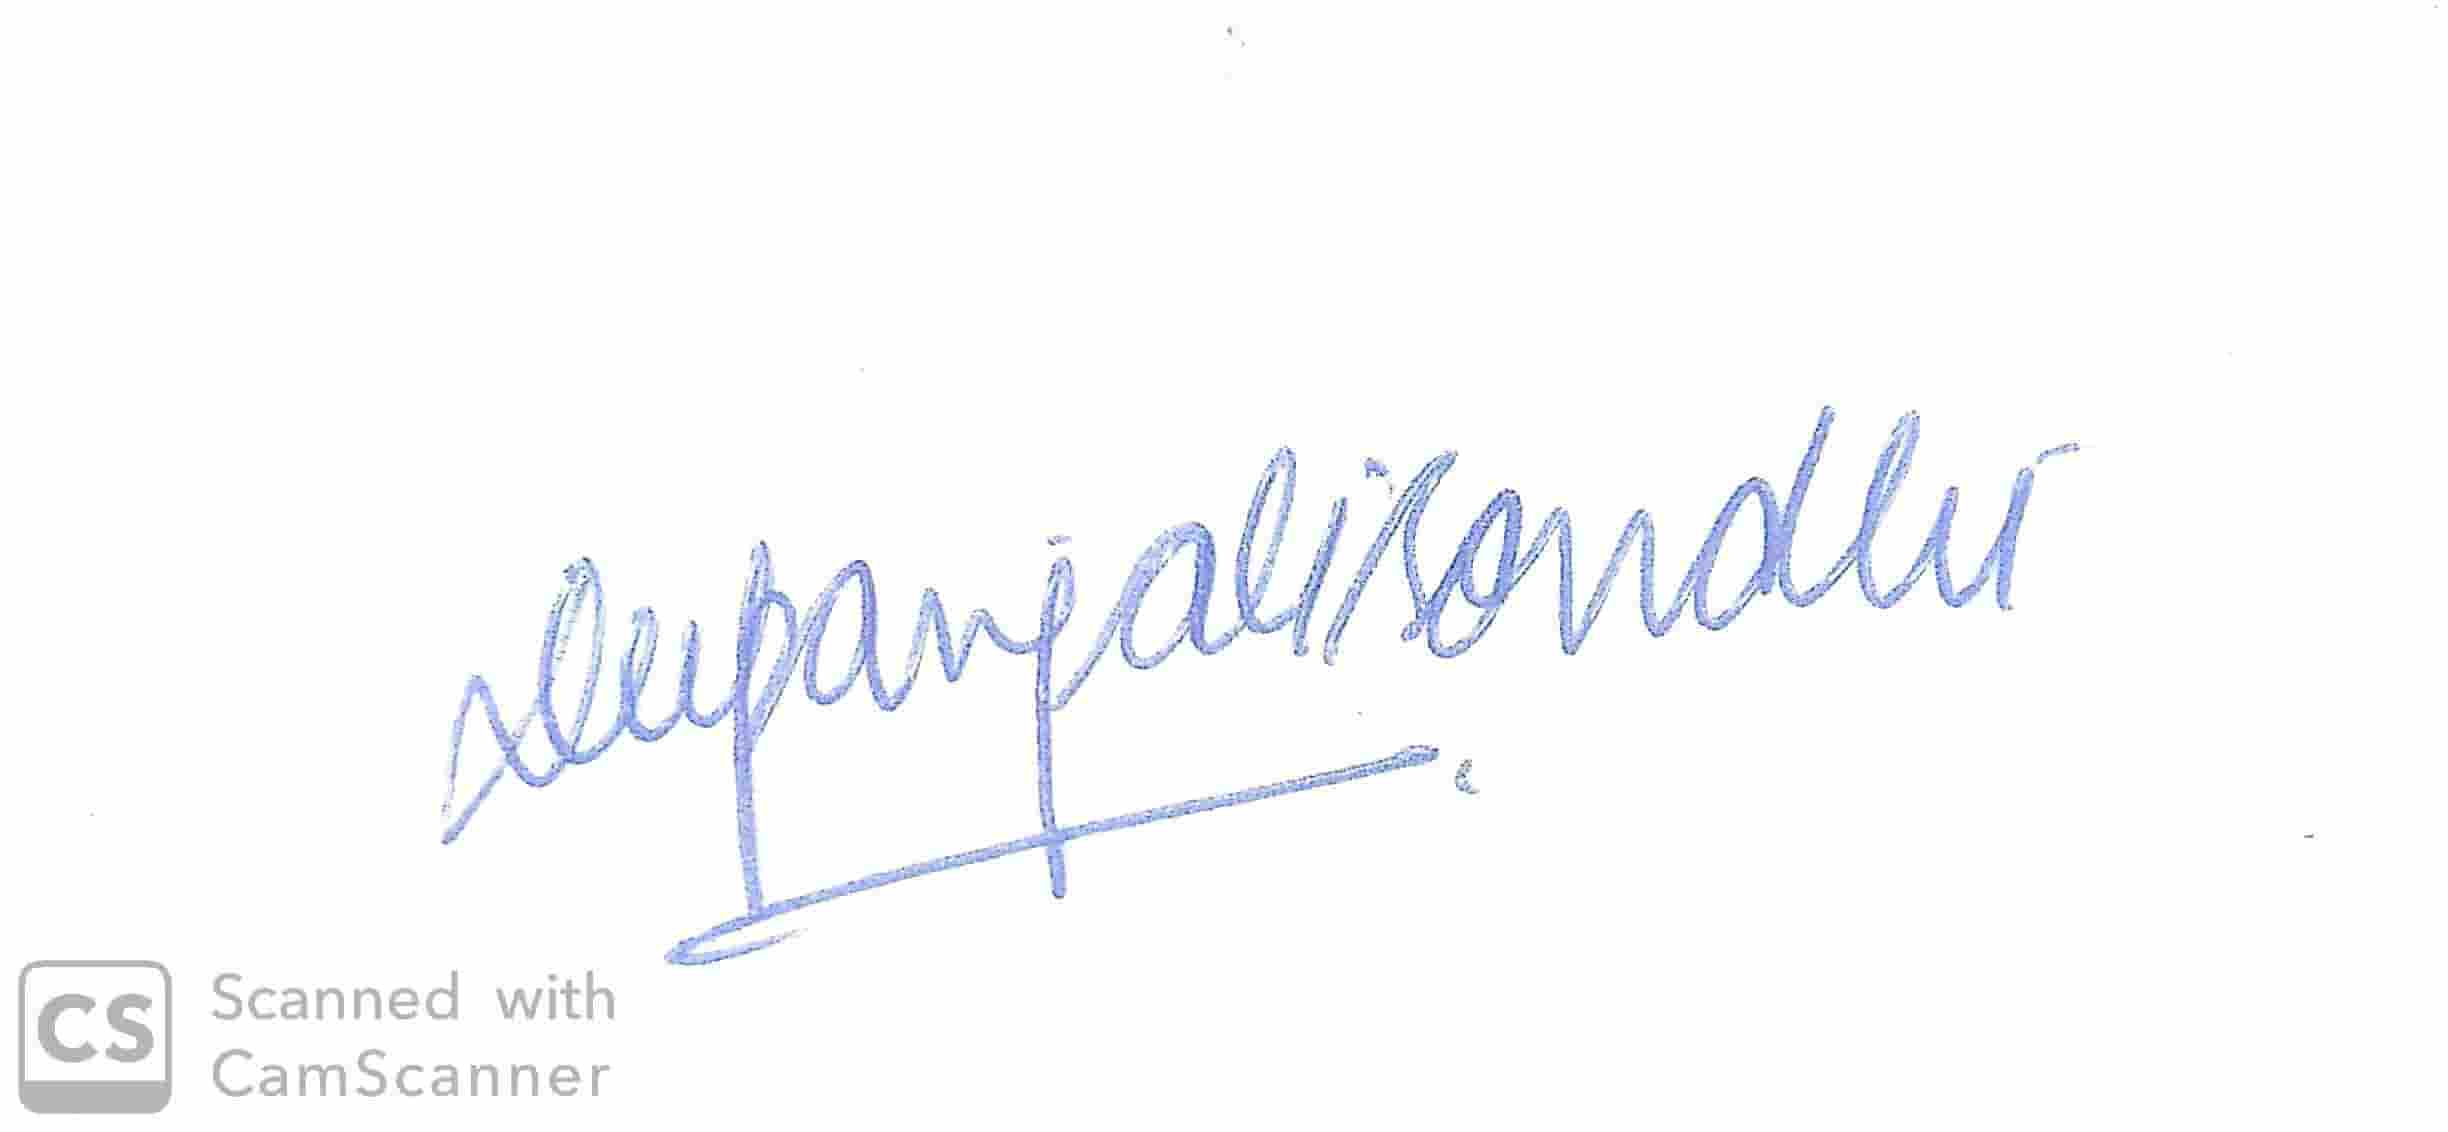 Deepanjali Sandhu
CS Scanned with
CamScanner